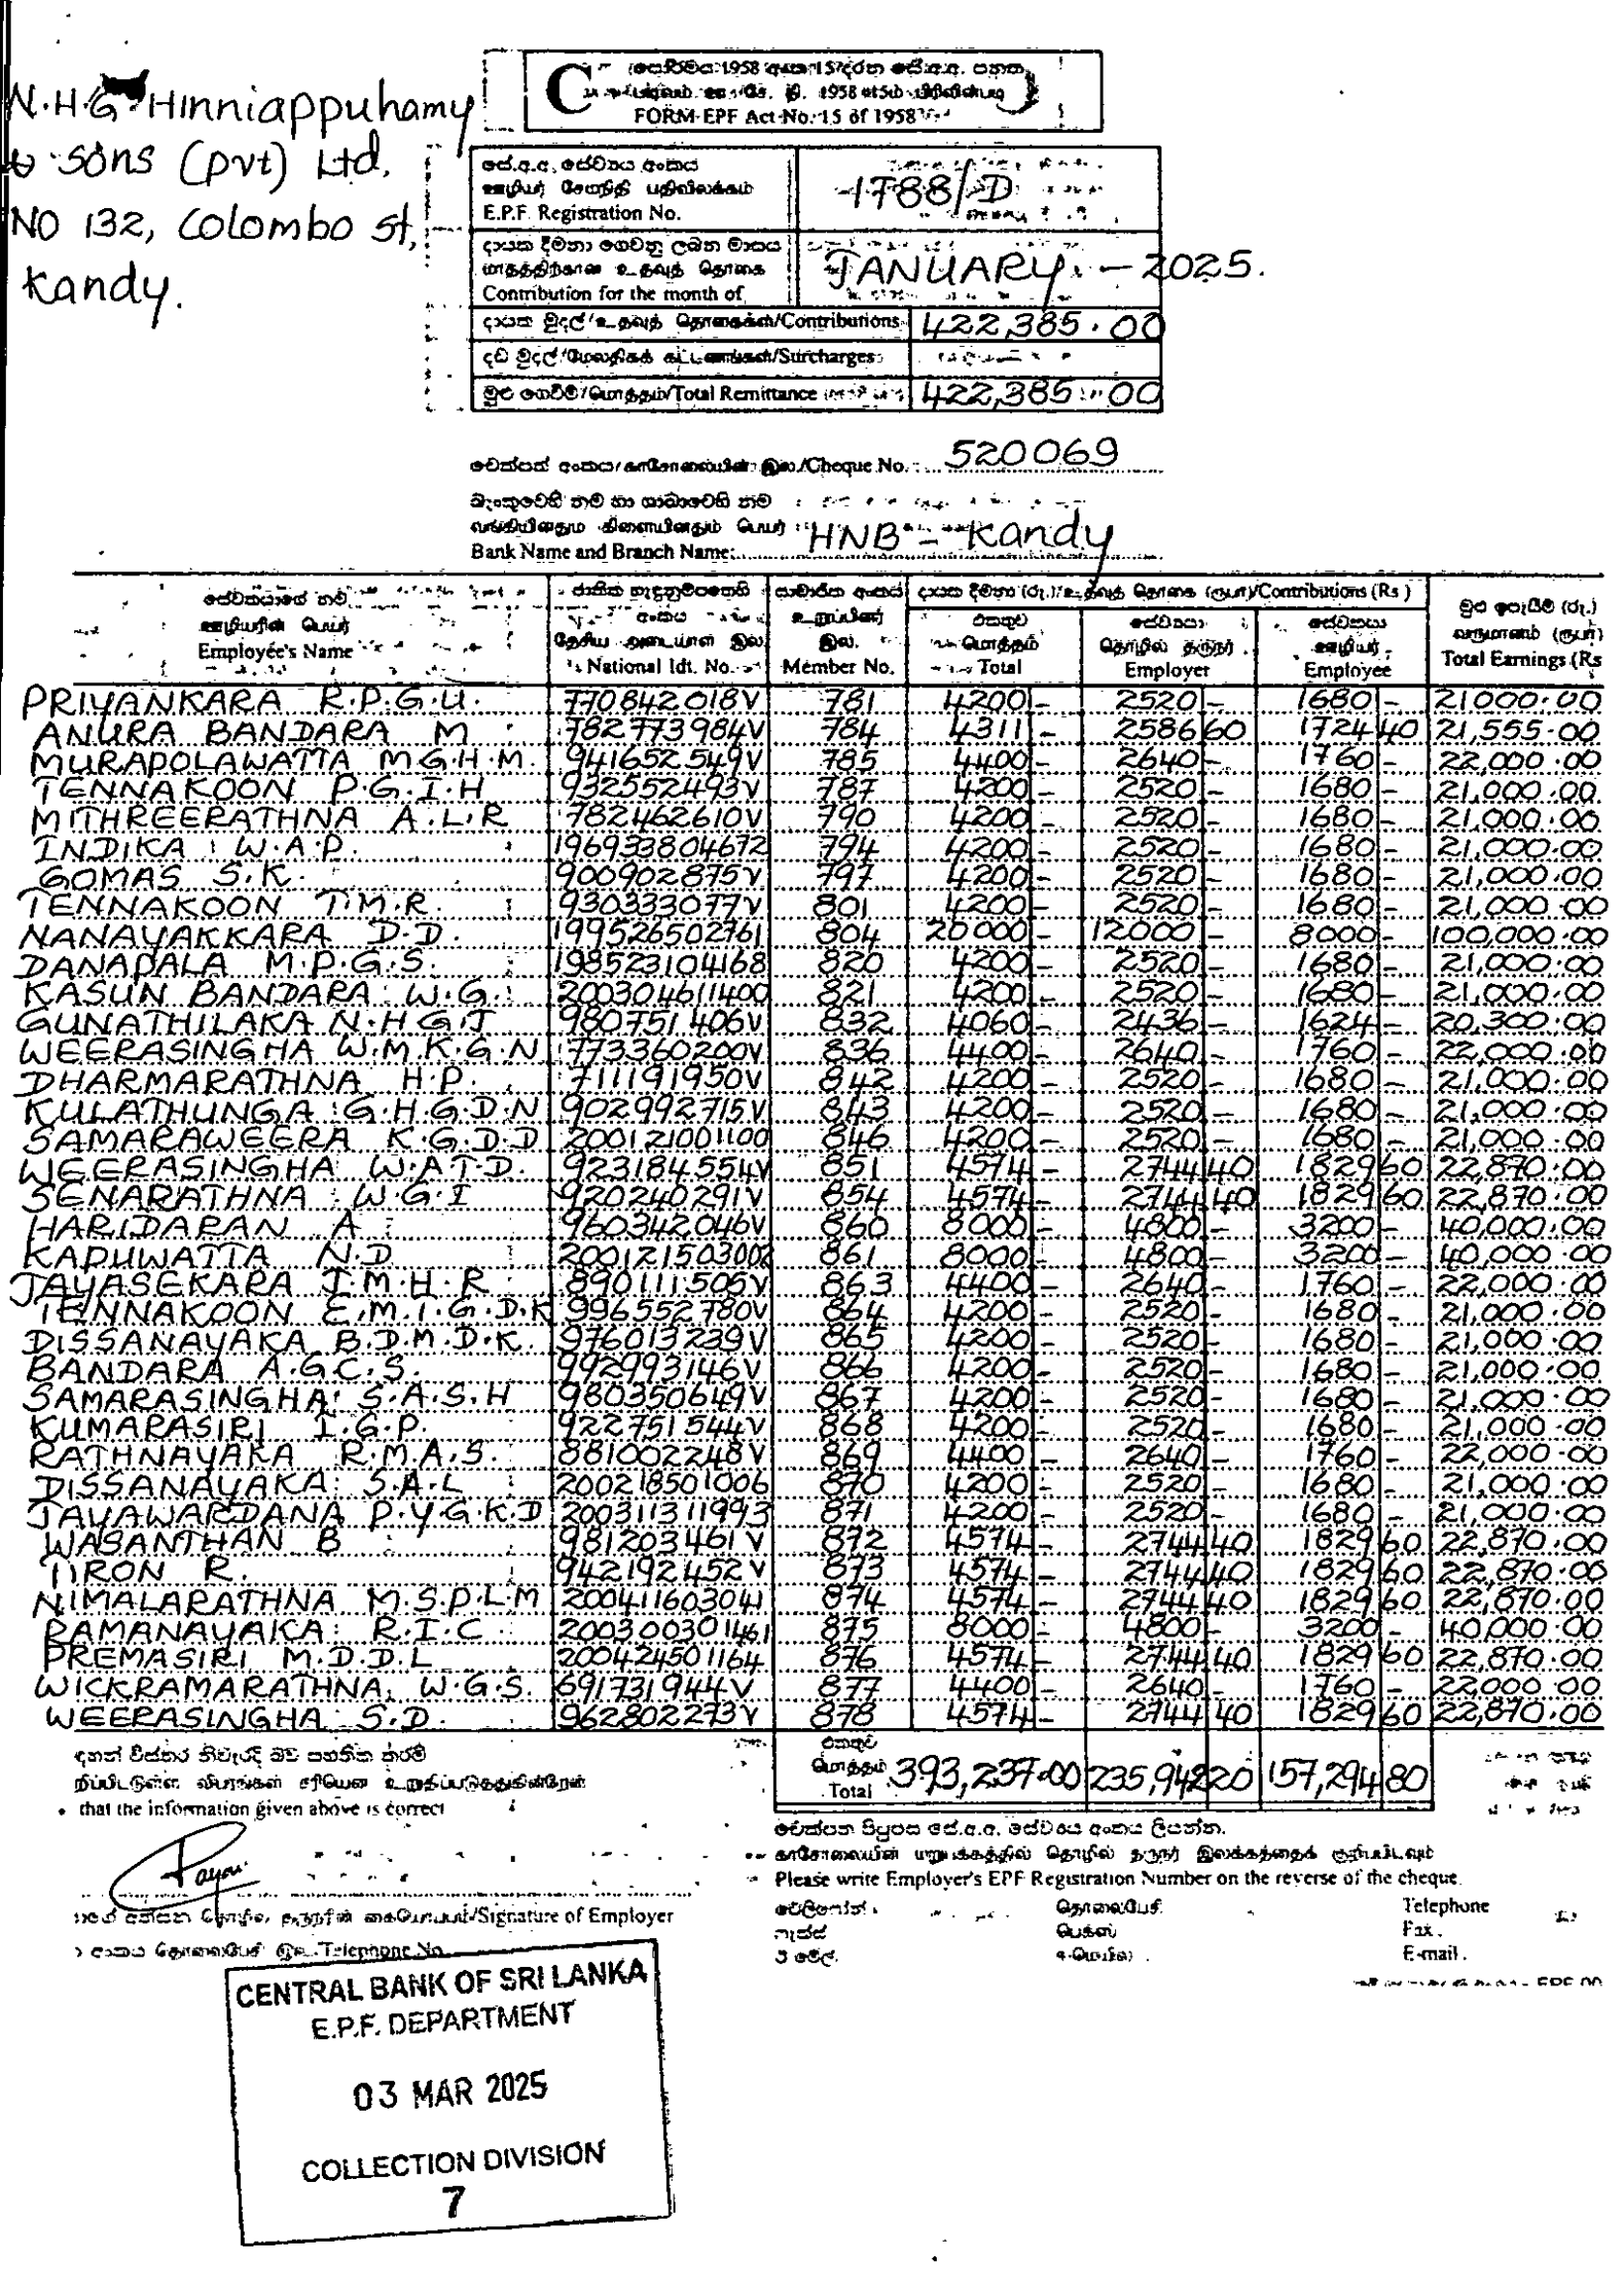 N.H.G. Hinniappuhamy
& Sons (pvt) Ltd,
NO 132, Colombo st,
Kandy.
C
FORM EPF Act No. 15 of 1958
E.P.F. Registration No. 1788/D
Contribution for the month of JANUARY - 2025.
දායක මුදල්/உதவுத் தொகைகள்/Contributions 422,385.00
දඩ මුදල්/மேலதிகக் கட்டணங்கள்/Surcharges
මුළු ගෙවීම්/மொத்தம்/Total Remittance 422,385.00
Cheque No. 520069
Bank Name and Branch Name: HNB - Kandy
Employee's Name National Idt. No. Member No. Contributions (Rs) Total Employer Employee Total Earnings (Rs
PRIYANKARA R.P.G.U. 770842018V 781 4200 - 2520 - 1680 - 21000.00
ANURA BANDARA M 782773984V 784 4311 - 2586 60 1724 40 21,555.00
MURAPOLAWATTA M.G.H.M. 941652549V 785 4400 - 2640 - 1760 - 22,000.00
TENNAKOON P.G.I.H 932552493V 787 4200 - 2520 - 1680 - 21,000.00
MITHREERATHNA A.L.R 782462610V 790 4200 - 2520 - 1680 - 21,000.00
INDIKA W.A.P. 196933804672 794 4200 - 2520 - 1680 - 21,000.00
GOMAS S.K. 900902875V 797 4200 - 2520 - 1680 - 21,000.00
TENNAKOON T.M.R. 930333077V 801 4200 - 2520 - 1680 - 21,000.00
NANAYAKKARA D.D. 199526502761 804 20000 - 12000 - 8000 - 100,000.00
DANAPALA M.P.G.S. 198523104168 820 4200 - 2520 - 1680 - 21,000.00
KASUN BANDARA W.G. 200304611400 821 4200 - 2520 - 1680 - 21,000.00
GUNATHILAKA N.H.G.J 980751406V 832 4060 - 2436 - 1624 - 20,300.00
WEERASINGHA W.M.K.G.N 773360200V 836 4400 - 2640 - 1760 - 22,000.00
DHARMARATHNA H.P. 711191950V 842 4200 - 2520 - 1680 - 21,000.00
KULATHUNGA G.H.G.D.N 902992715V 843 4200 - 2520 - 1680 - 21,000.00
SAMARAWEERA K.G.D.D 200121001100 846 4200 - 2520 - 1680 - 21,000.00
WEERASINGHA W.A.T.D. 923184554V 851 4574 - 2744 40 1829 60 22,870.00
SENARATHNA W.G.I 920240291V 854 4574 - 2744 40 1829 60 22,870.00
HARIDARAN A 960342046V 860 8000 - 4800 - 3200 - 40,000.00
KAPUWATTA N.D 200121503002 861 8000 - 4800 - 3200 - 40,000.00
JAYASEKARA J.M.H.R 890111506V 863 4400 - 2640 - 1760 - 22,000.00
TENNAKOON E.M.I.G.D.K 996552780V 864 4200 - 2520 - 1680 - 21,000.00
DISSANAYAKA B.D.M.D.K. 976013239V 865 4200 - 2520 - 1680 - 21,000.00
BANDARA A.G.C.S. 992993146V 866 4200 - 2520 - 1680 - 21,000.00
SAMARASINGHA S.A.S.H 980350649V 867 4200 - 2520 - 1680 - 21,000.00
KUMARASIRI I.G.P. 922751544V 868 4200 - 2520 - 1680 - 21,000.00
RATHNAYAKA R.M.A.S. 881002248V 869 4400 - 2640 - 1760 - 22,000.00
DISSANAYAKA S.A.L 200218501006 870 4200 - 2520 - 1680 - 21,000.00
JAYAWARDANA P.Y.G.K.D 200311311993 871 4200 - 2520 - 1680 - 21,000.00
WASANTHAN B 981203461V 872 4574 - 2744 40 1829 60 22,870.00
TIRON R. 942192452V 873 4574 - 2744 40 1829 60 22,870.00
NIMALARATHNA M.S.P.L.M 200411603041 874 4574 - 2744 40 1829 60 22,870.00
RAMANAYAKA R.I.C 200300301461 875 8000 - 4800 - 3200 - 40,000.00
PREMASIRI M.D.D.L 200424501164 876 4574 - 2744 40 1829 60 22,870.00
WICKRAMARATHNA W.G.S. 691731944V 877 4400 - 2640 - 1760 - 22000.00
WEERASINGHA S.D. 962802273V 878 4574 - 2744 40 1829 60 22,870.00
Total 393,237.00 235,942 20 157,294 80
that the information given above is correct
Please write Employer's EPF Registration Number on the reverse of the cheque.
Signature of Employer
Telephone No.
Telephone
Fax.
E-mail.
CENTRAL BANK OF SRI LANKA
E.P.F. DEPARTMENT
03 MAR 2025
COLLECTION DIVISION
7